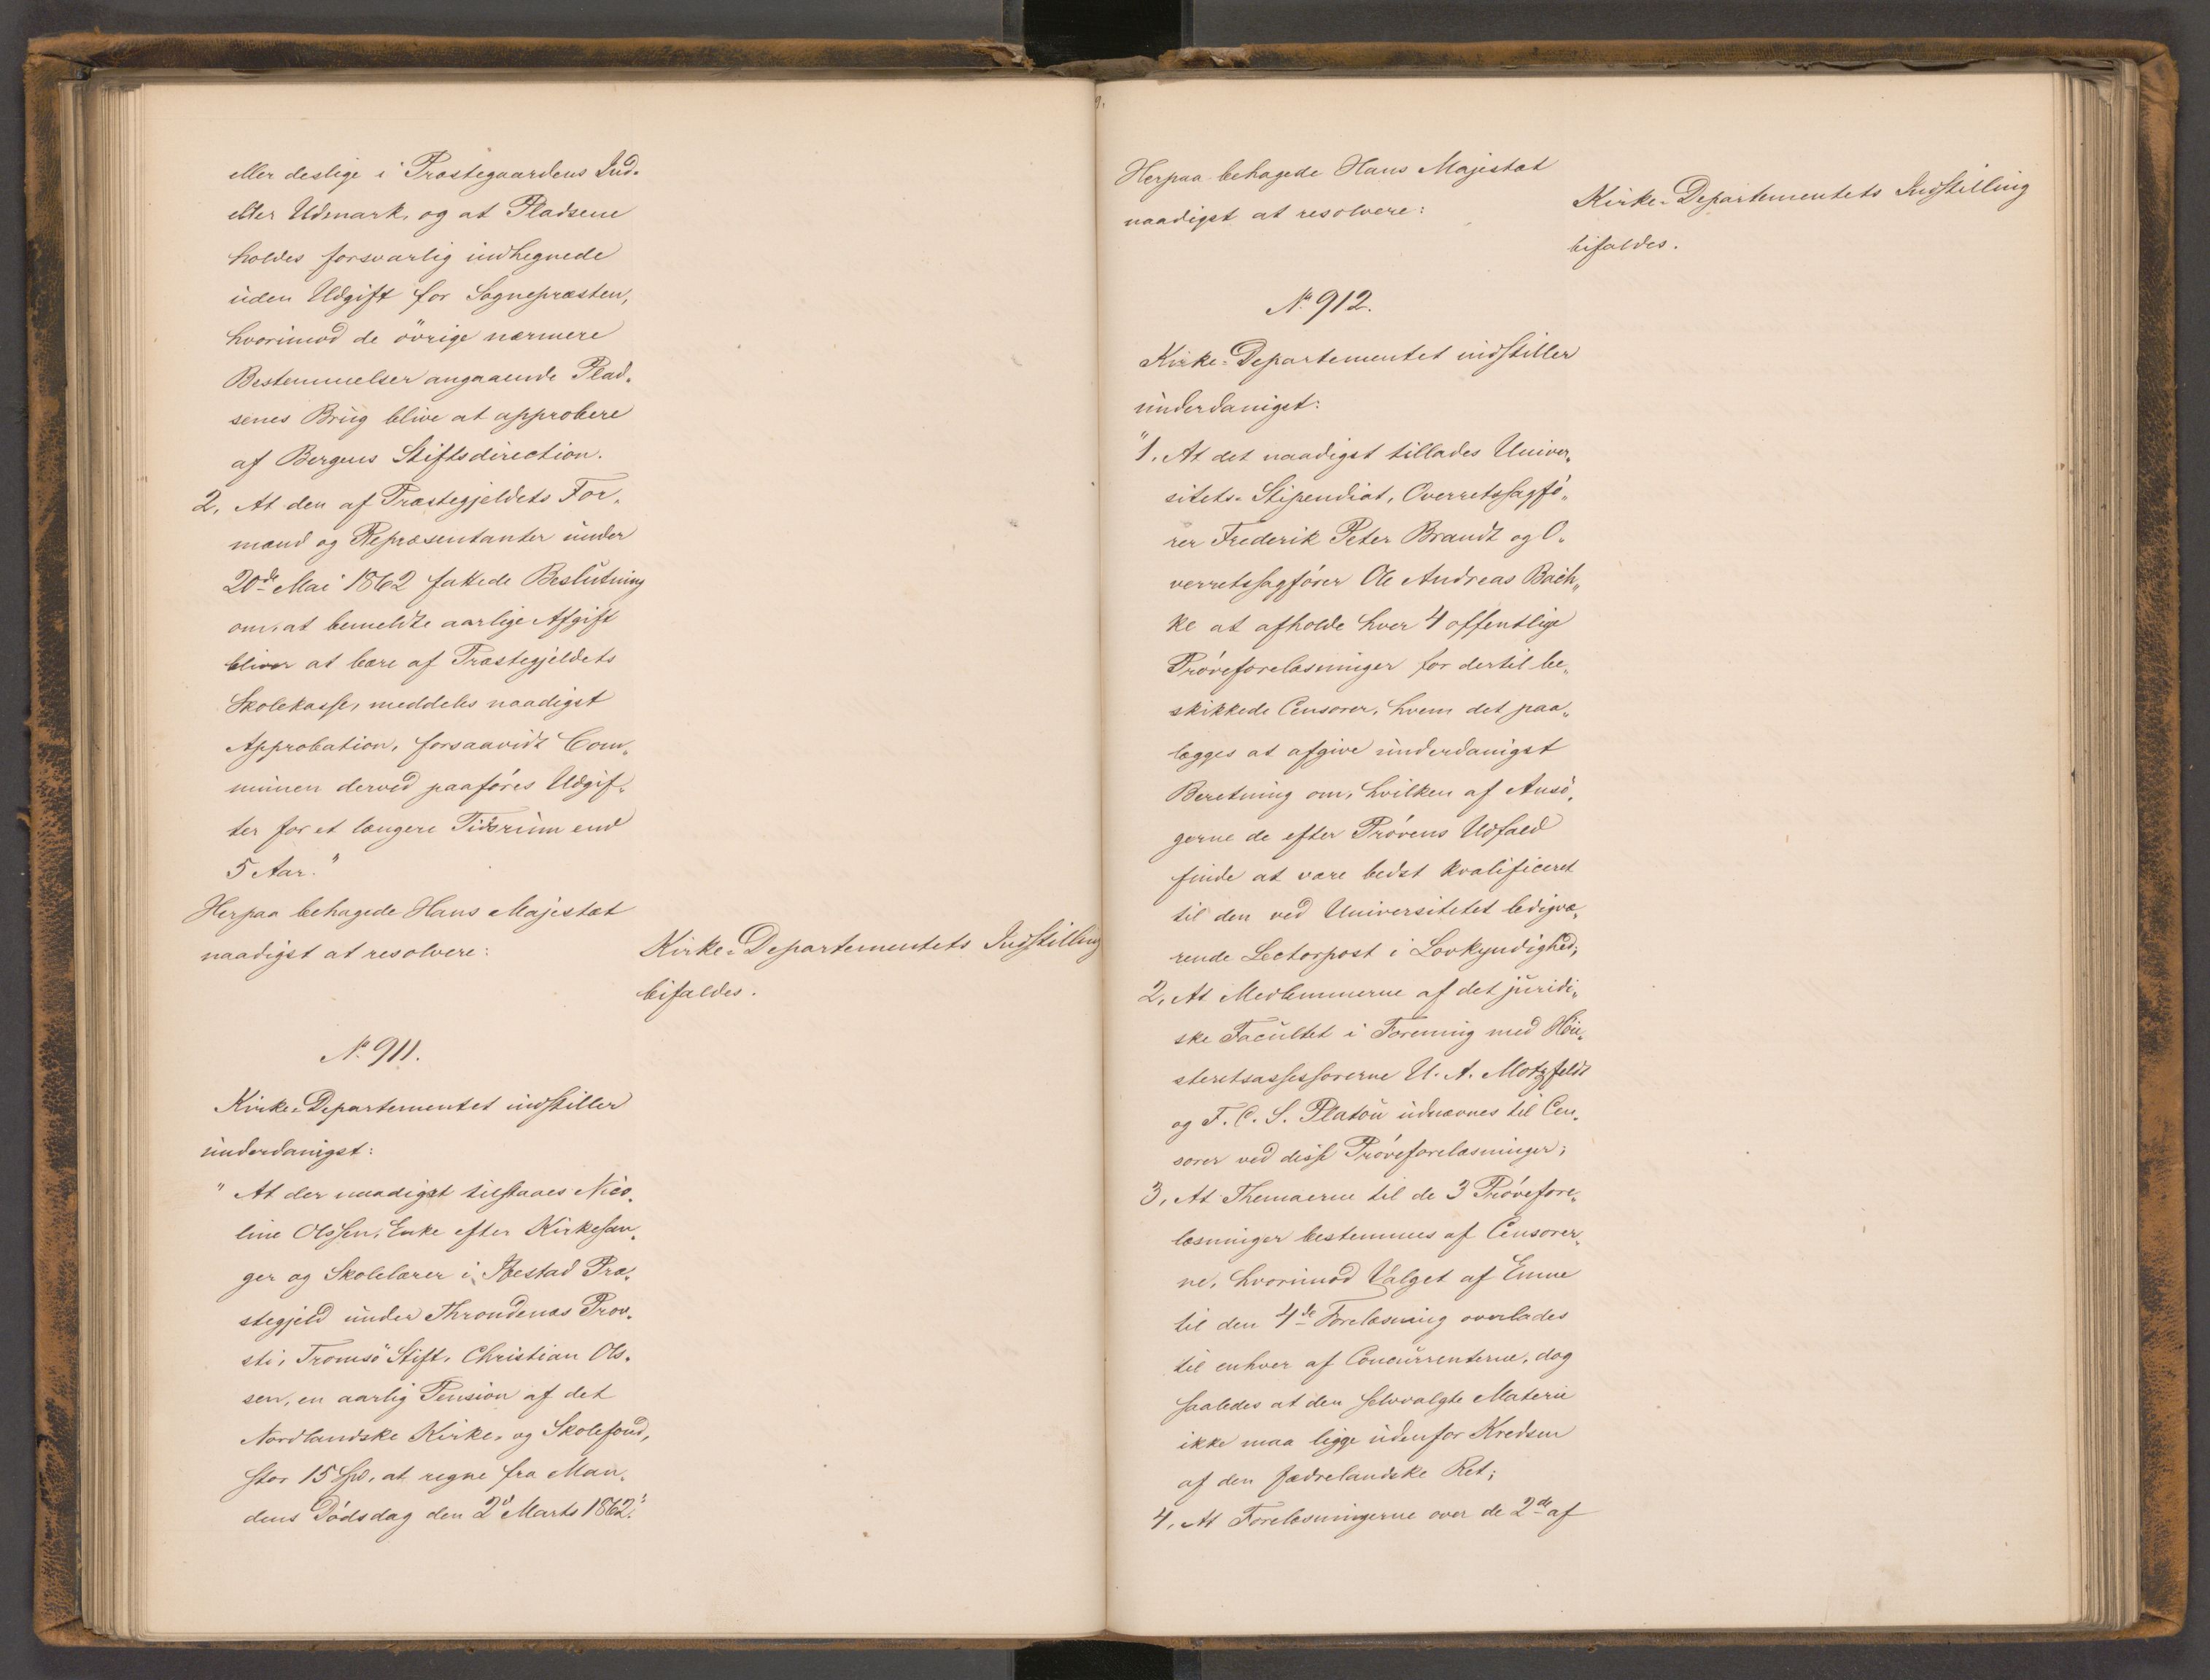 eller deslige i Præstegaardens Ind-
eller Udmark, og at Pladsene
holdes forsvarlig indhegnede
uden Udgift for Sognepræsten,
hvorimod de övrige nærmere
Bestemmelser angaaende Plad-
senes Brug blive at approbere
af Bergens Stiftsdirection.
2, At den af Præstegjeldets For-
mænd og Repræsentanter under
20de Mai 1862 fattede Beslutning
om, at bemeldte aarlige Afgift
bliver at bære af Præstegjeldets
Skolekasse, meddeles naadigst
Approbation, forsaavidt Com-
munen derved paaføres Udgif-
ter for et længere Tidsrum end
5 Aar."
Herpaa behagede Hans Majestæt
naadigst at resolvere:
Kirke-Departementets Indstilling
bifaldes.
No 911.
Kirke-Departementet indstiller
underdanigst:
"At der naadigst tilstaaes Nico-
line Olssen, Enke efter Kirkesan-
ger og Skolelærer i Ibestad Præ-
stegjeld under Throndenæs Prov-
sti, Tromsö Stift, Christian Ols-
sen, en aarlig Pension af det
Nordlandske Kirke- og Skolefond,
stor 15 Spd, at regne fra Man-
dens Dødsdag den 2d Marts 1862."
Herpaa behagede Hans Majestæt
naadigst at resolvere:
Kirke-Departementets Indstilling
bifaldes.
No 912.
Kirke-Departementet indstiller
underdanigst:
"1. At det naadigst tillades Univer-
sitets-Stipendiat, Overretssagfø-
rer Frederik Peter Brandt og O-
verretssagfører Ole Andreas Bach-
ke at afholde hver 4 offentlige
Prøveforelæsninger for dertil be-
skikkede Censorer, hvem det paa-
lægges at afgive underdanigst
Beretning om, hvilken af Ansø-
gerne de efter Prøvens Udfald
finde at være bedst kvalificeret
til den ved Universitetet ledigvæ-
rende Lectorpost i Lovkyndighed;
2, At Medlemmerne af det juridi-
ske Facultet i Forening med Høie-
steretsassessorerne U. A. Motzfeldt
og F. C. S. Platou udnævnes til Cen-
sorer ved disse Prøveforelæsninger;
3, At Themaerne til de 3 Prøvefore-
læsninger bestemmes af Censorer-
ne, hvorimod Valget af Emne
til den 4de Forelæsning overlades
til enhver af Concurrenterne, dog
saaledes at den selvvalgte Materie
ikke maa ligge udenfor Kredsen
af den fædrelandske Ret;
4, At Forelæsningerne over de 2de af